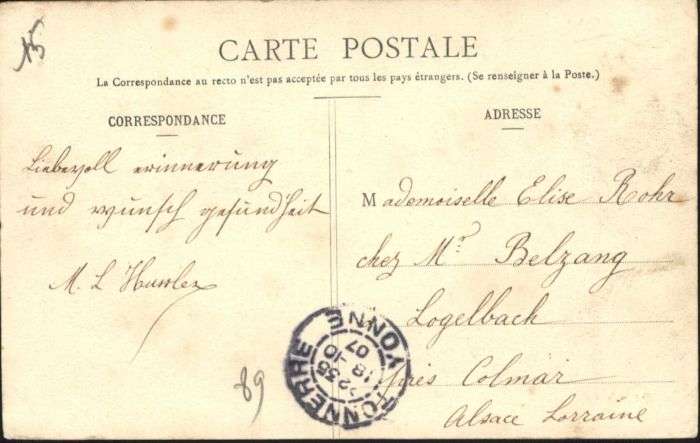 CARTE POSTALE
La Correspondance au recto n'est pas acceptée par tous les pays étrangers. (Se renseigner à la Poste.)
CORRESPONDANCE
Liebevoll erinnerung
und wunsch gesundheit
M. L
ADRESSE
Mademoiselle Elise Rohr
chez Mr. Belzang
Logelbach
près Colmar
Alsace Lorraine
TONNERRE
YONNE
18-10
07
89